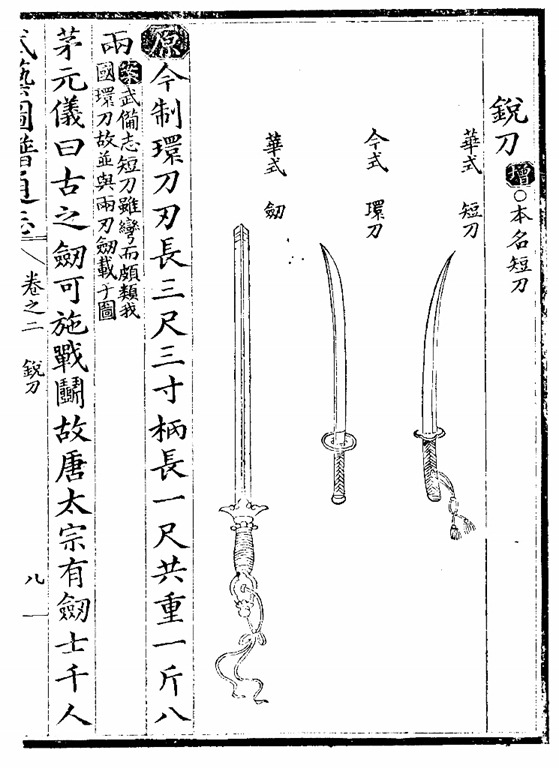 銳刀 增 ○本名短刀
華式 短刀
今式 環刀
華式 劒
原 今制環刀刃長三尺三寸柄長一尺共重一斤八
兩 案 武備志短刀雖彎而頗類我
國環刀故並與兩刃劒載于圖
茅元儀曰古之劒可施戰鬪故唐太宗有劒士千人
武藝圖譜通志 卷之二 銳刀 八